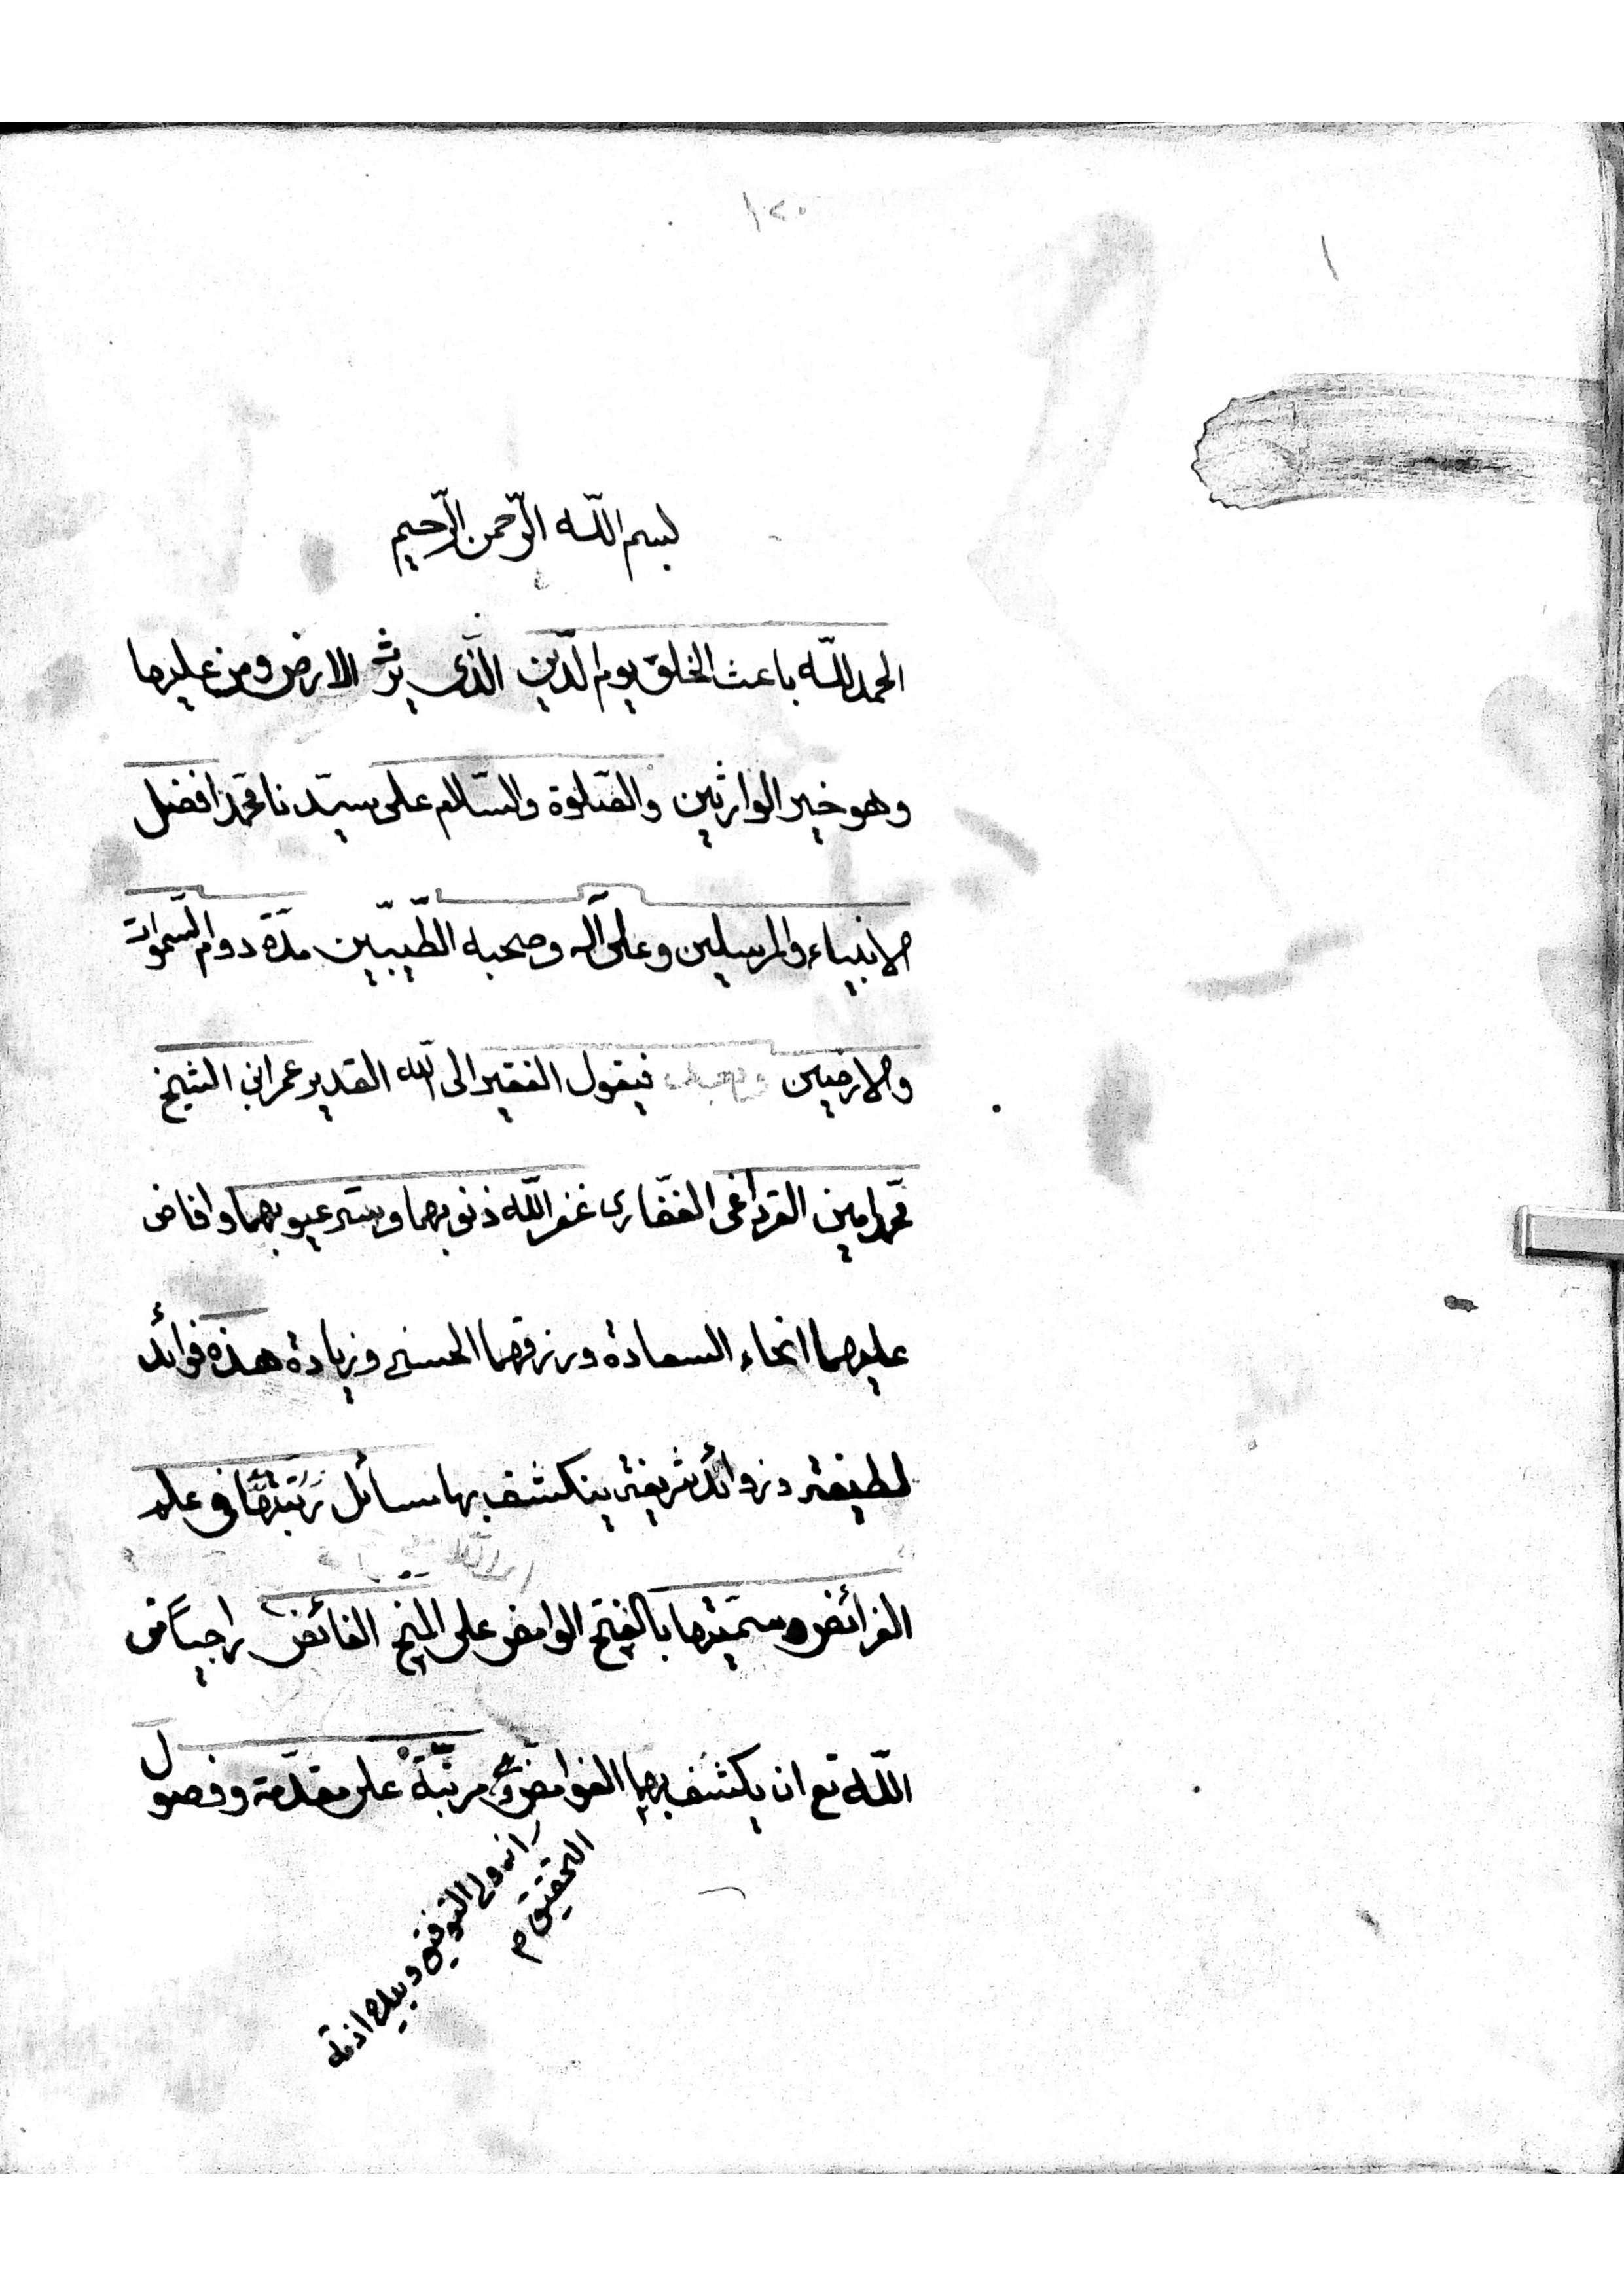 ١٢٠
١
بسم اللّه الرّحمن الرّحيم
الحمد للّه باعث الخلق يوم الدّين الّذى يرث الارض ومن عليها
وهو خير الوارثين والصّلوة والسّلام على سيّدنا محمّد افضل
الانبياء والمرسلين وعلى آله وصحبه الطّيبيّن مدّة دوام السّموات
والارضين فيقول الفقير الى اللّه القدير عمر ابن الشيخ
محمّد امين القرداغى الغفّارى غفر اللّه ذنوبهما وستر عيوبهما وافاض
عليهما انحاء السعادة ورزقهما الحسنى وزيادة هذه فوائد
لطيفة وزوائد شريفة ينكشف بها مسائل رَتّبتُها فى علم
الفرائض وسمّيتها بالفتح الوامض على المنح الفائض راجيًا من
اللّه تع ان يكشف بها الغوامض مرتّبةً على مقدّمة وفصول
انه ولى التوفيق وبيده ازمة
التحقيق م